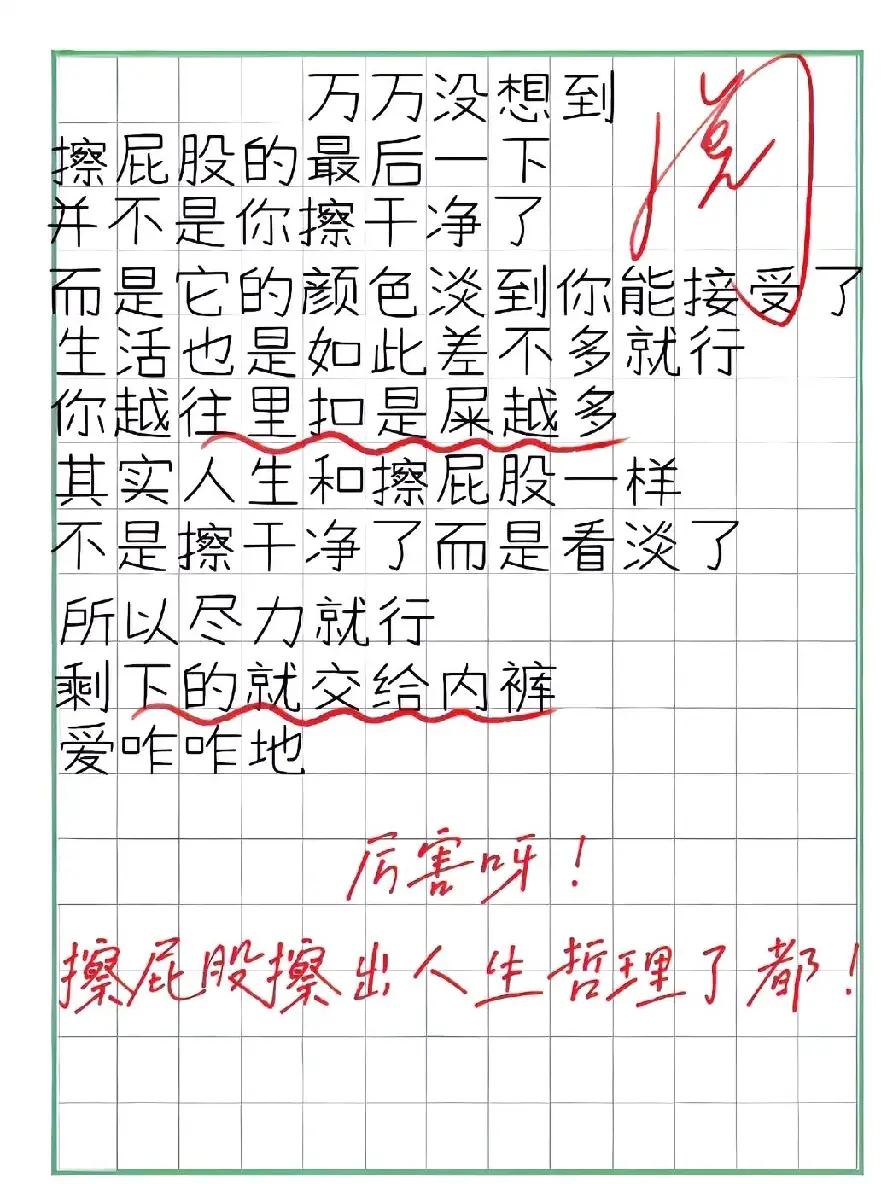 万万没想到
擦屁股的最后一下
并不是你擦干净了
而是它的颜色淡到你能接受了
生活也是如此差不多就行
你越往里扣是屎越多
其实人生和擦屁股一样
不是擦干净了而是看淡了
所以尽力就行
剩下的就交给内裤
爱咋咋地
阅
厉害呀！
擦屁股擦出人生哲理了都！